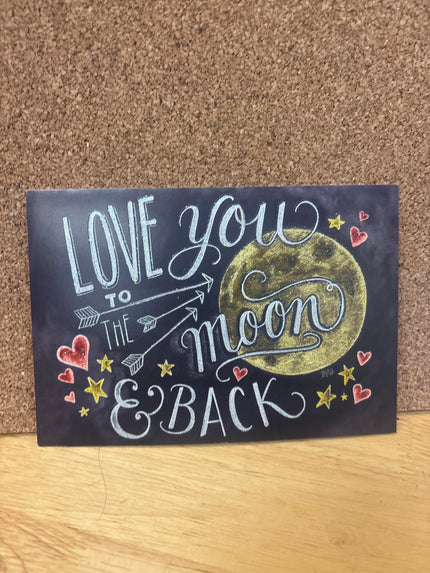 LOVE you
TO
THE moon
& BACK